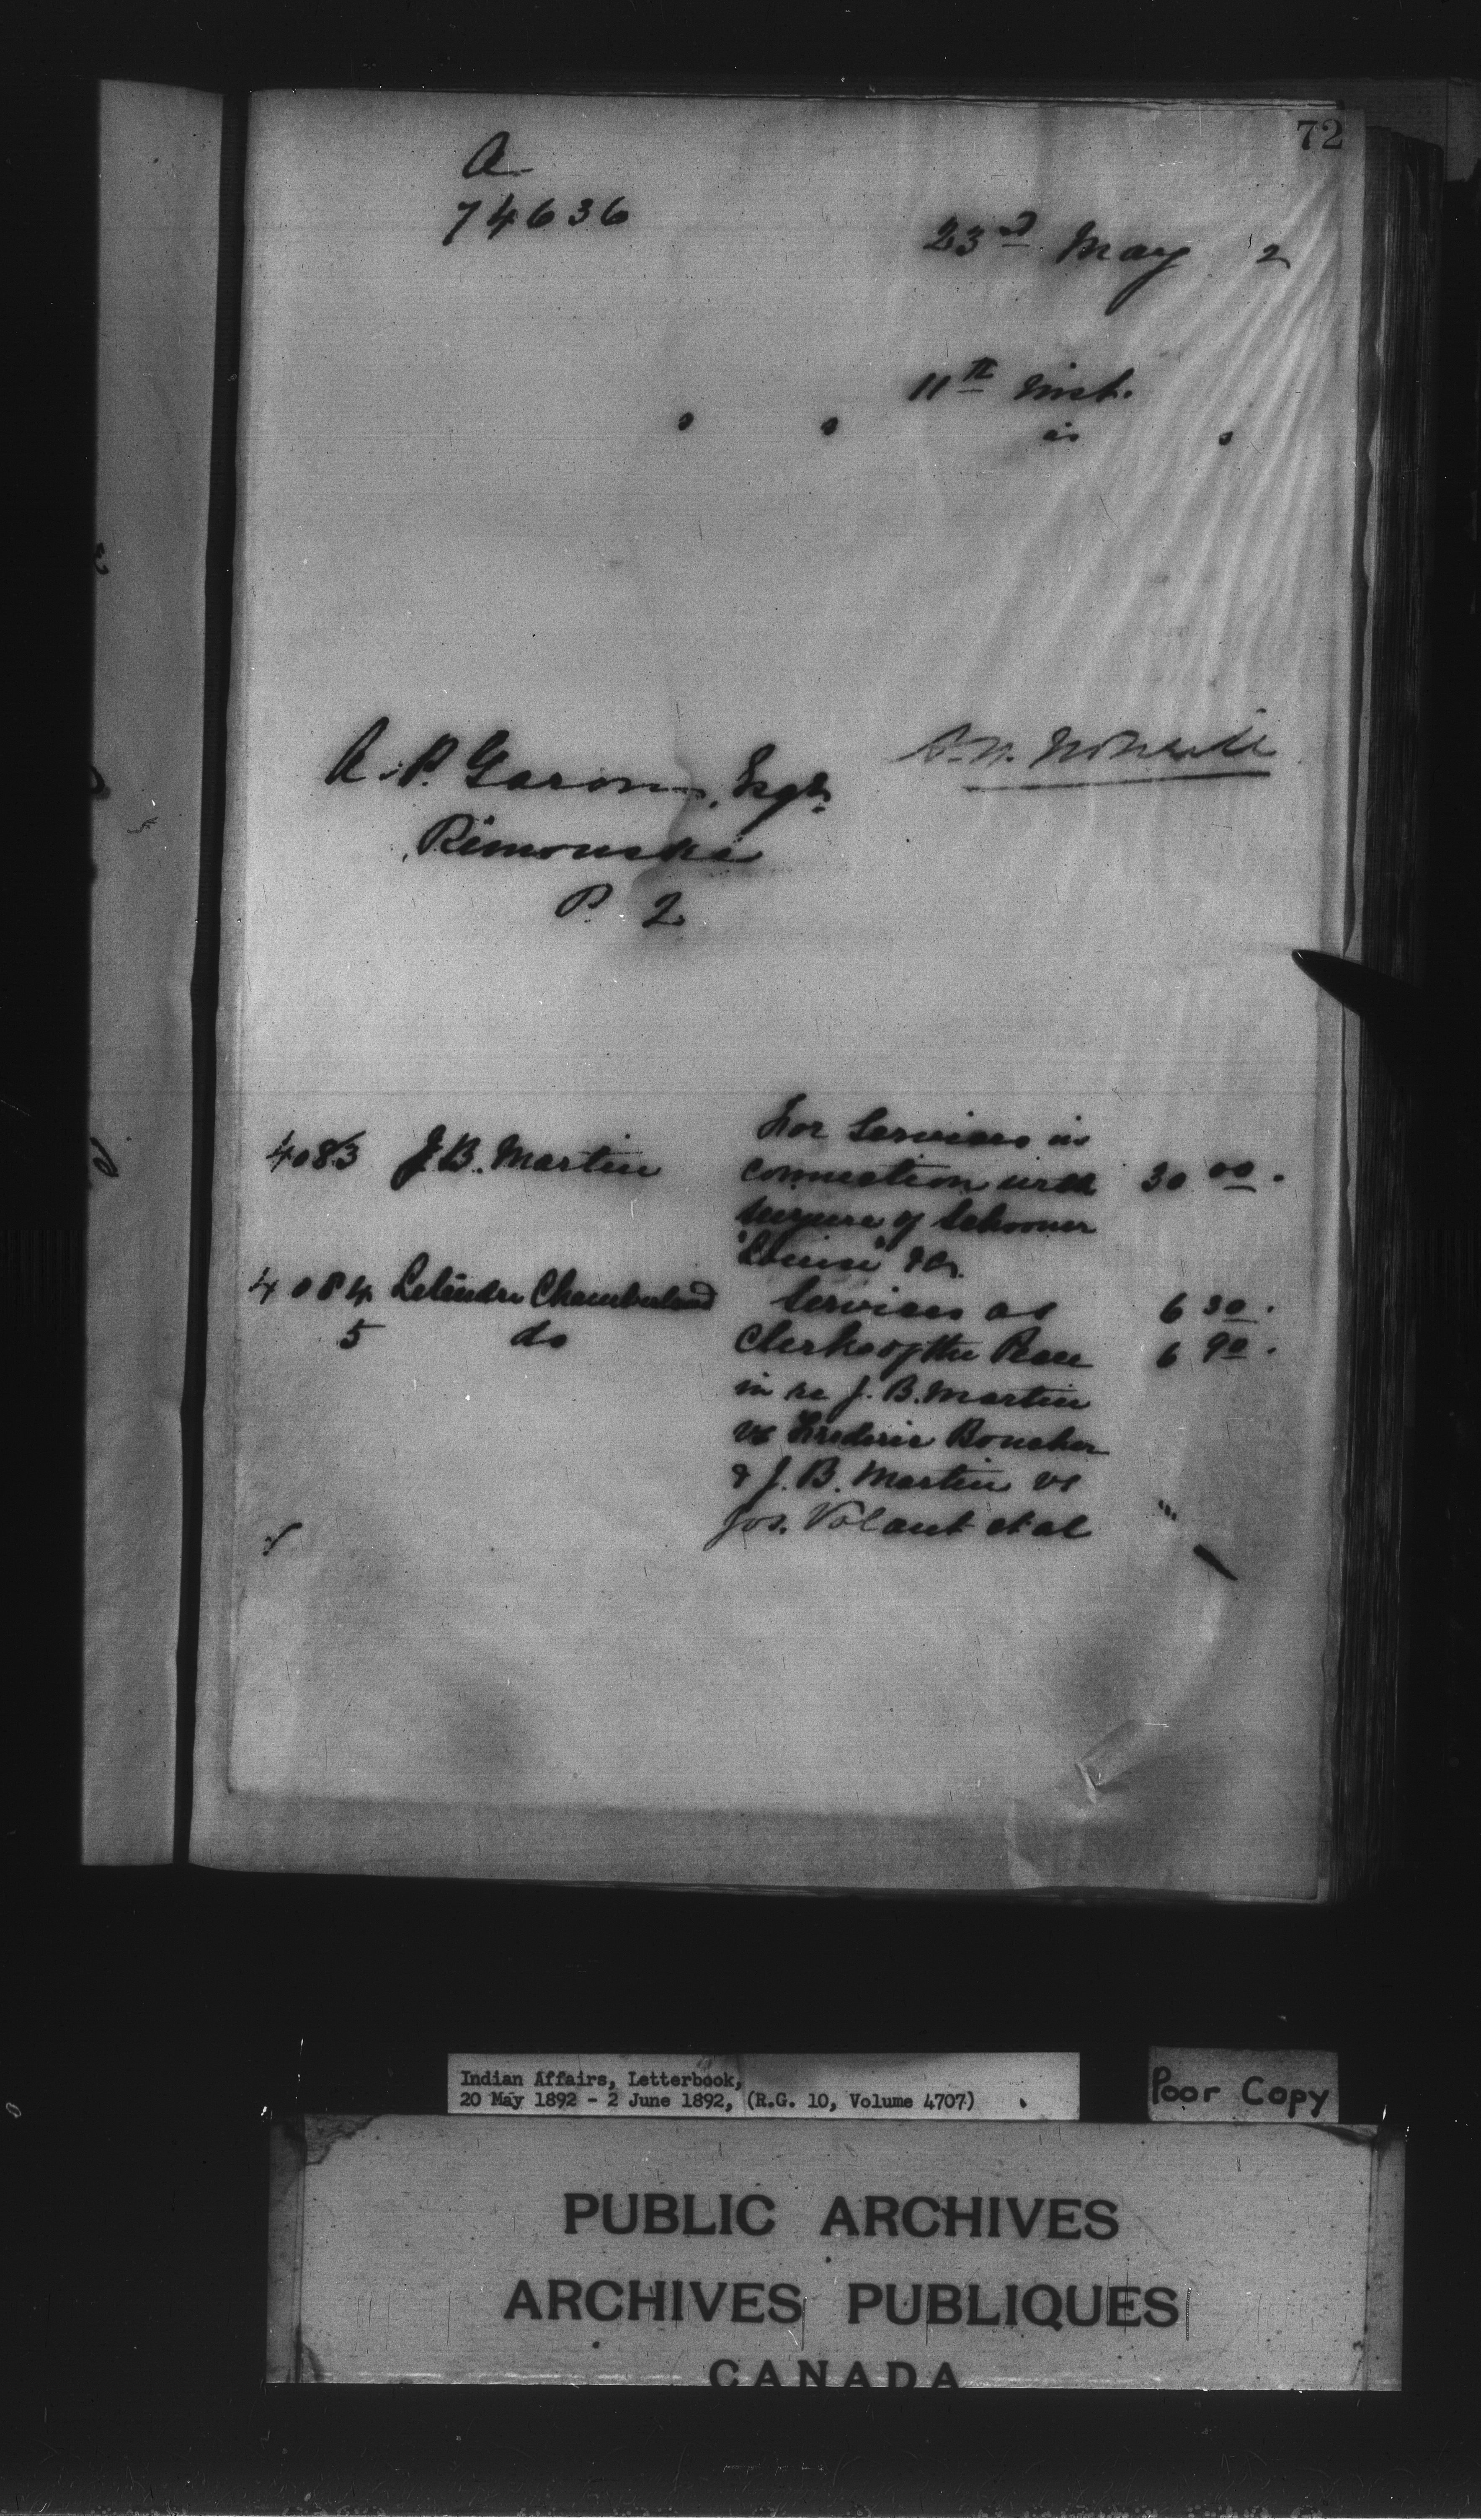 72
A
74636
23rd May 2
11th inst.
s s is s
A. P. Garon, Esqr.
Rimouski
P. Q
4083 J. B. Martin For Services in
connection with 30 00.
seizure of Schooner
"Louise" &c.
4084 Chamberland Services as 6 30.
5 do Clerk of the Peace 6 90.
in re J. B. Martin
vs Frederic Boucher
& J. B. Martin vs
Jos. Volant et al
Indian Affairs, Letterbook,
20 May 1892 - 2 June 1892, (R.G. 10, Volume 4707)
Poor Copy
PUBLIC ARCHIVES
ARCHIVES PUBLIQUES
CANADA